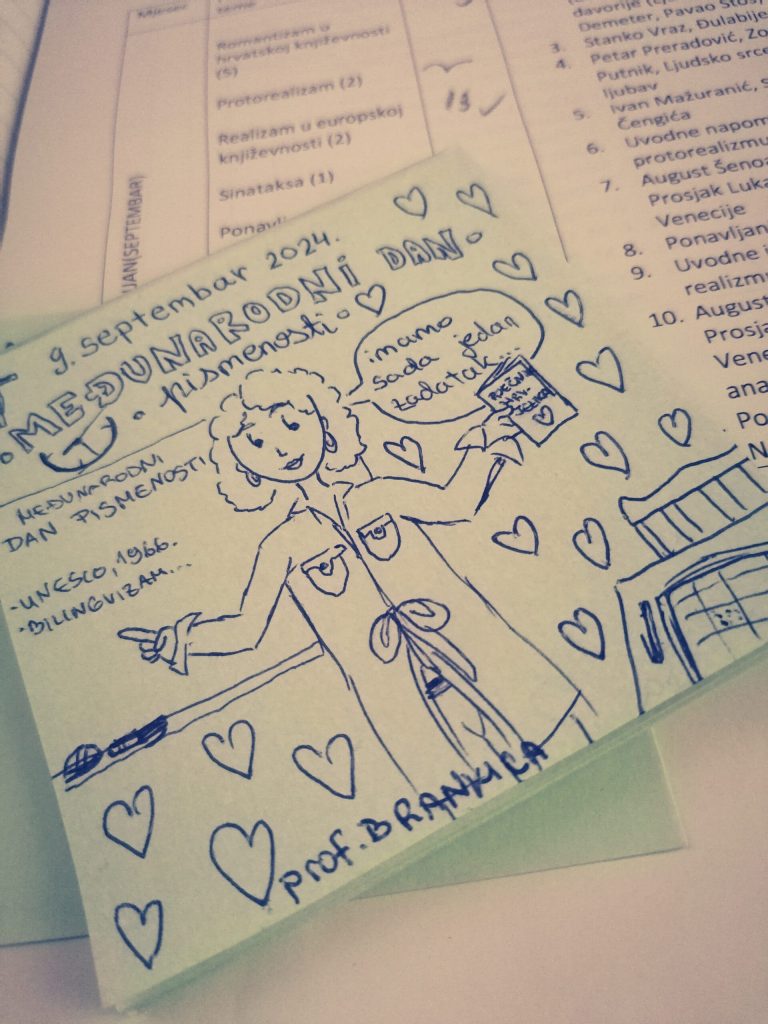 Mjesec
teme
Romantizam u
hrvatskoj književnosti
(5)
Protorealizam (2)
Realizam u europskoj
književnosti (2)
Sinataksa (1)
Ponavlj
JAN(SEPTEMBAR)
13 ✓
davorije
Demeter, Pavao Štoos,
3. Stanko Vraz, Đulabije
4. Petar Preradović, Zo
Putnik, Ljudsko srce
ljubav
5. Ivan Mažuranić, S
Čengića
6. Uvodne napom
protorealizmu
7. August Šenoa
Prosjak Luka
Venecije
8. Ponavljan
9. Uvodne i
realizmu
10. August
Prosja
Vene
ana
Po
N
9. septembar 2024.
MEĐUNARODNI DAN
pismenosti
imamo
sada jedan
zadatak...
MEĐUNARODNI
DAN PISMENOSTI
-UNESCO, 1966.
-BILINGVIZAM...
prof. BRANKICA